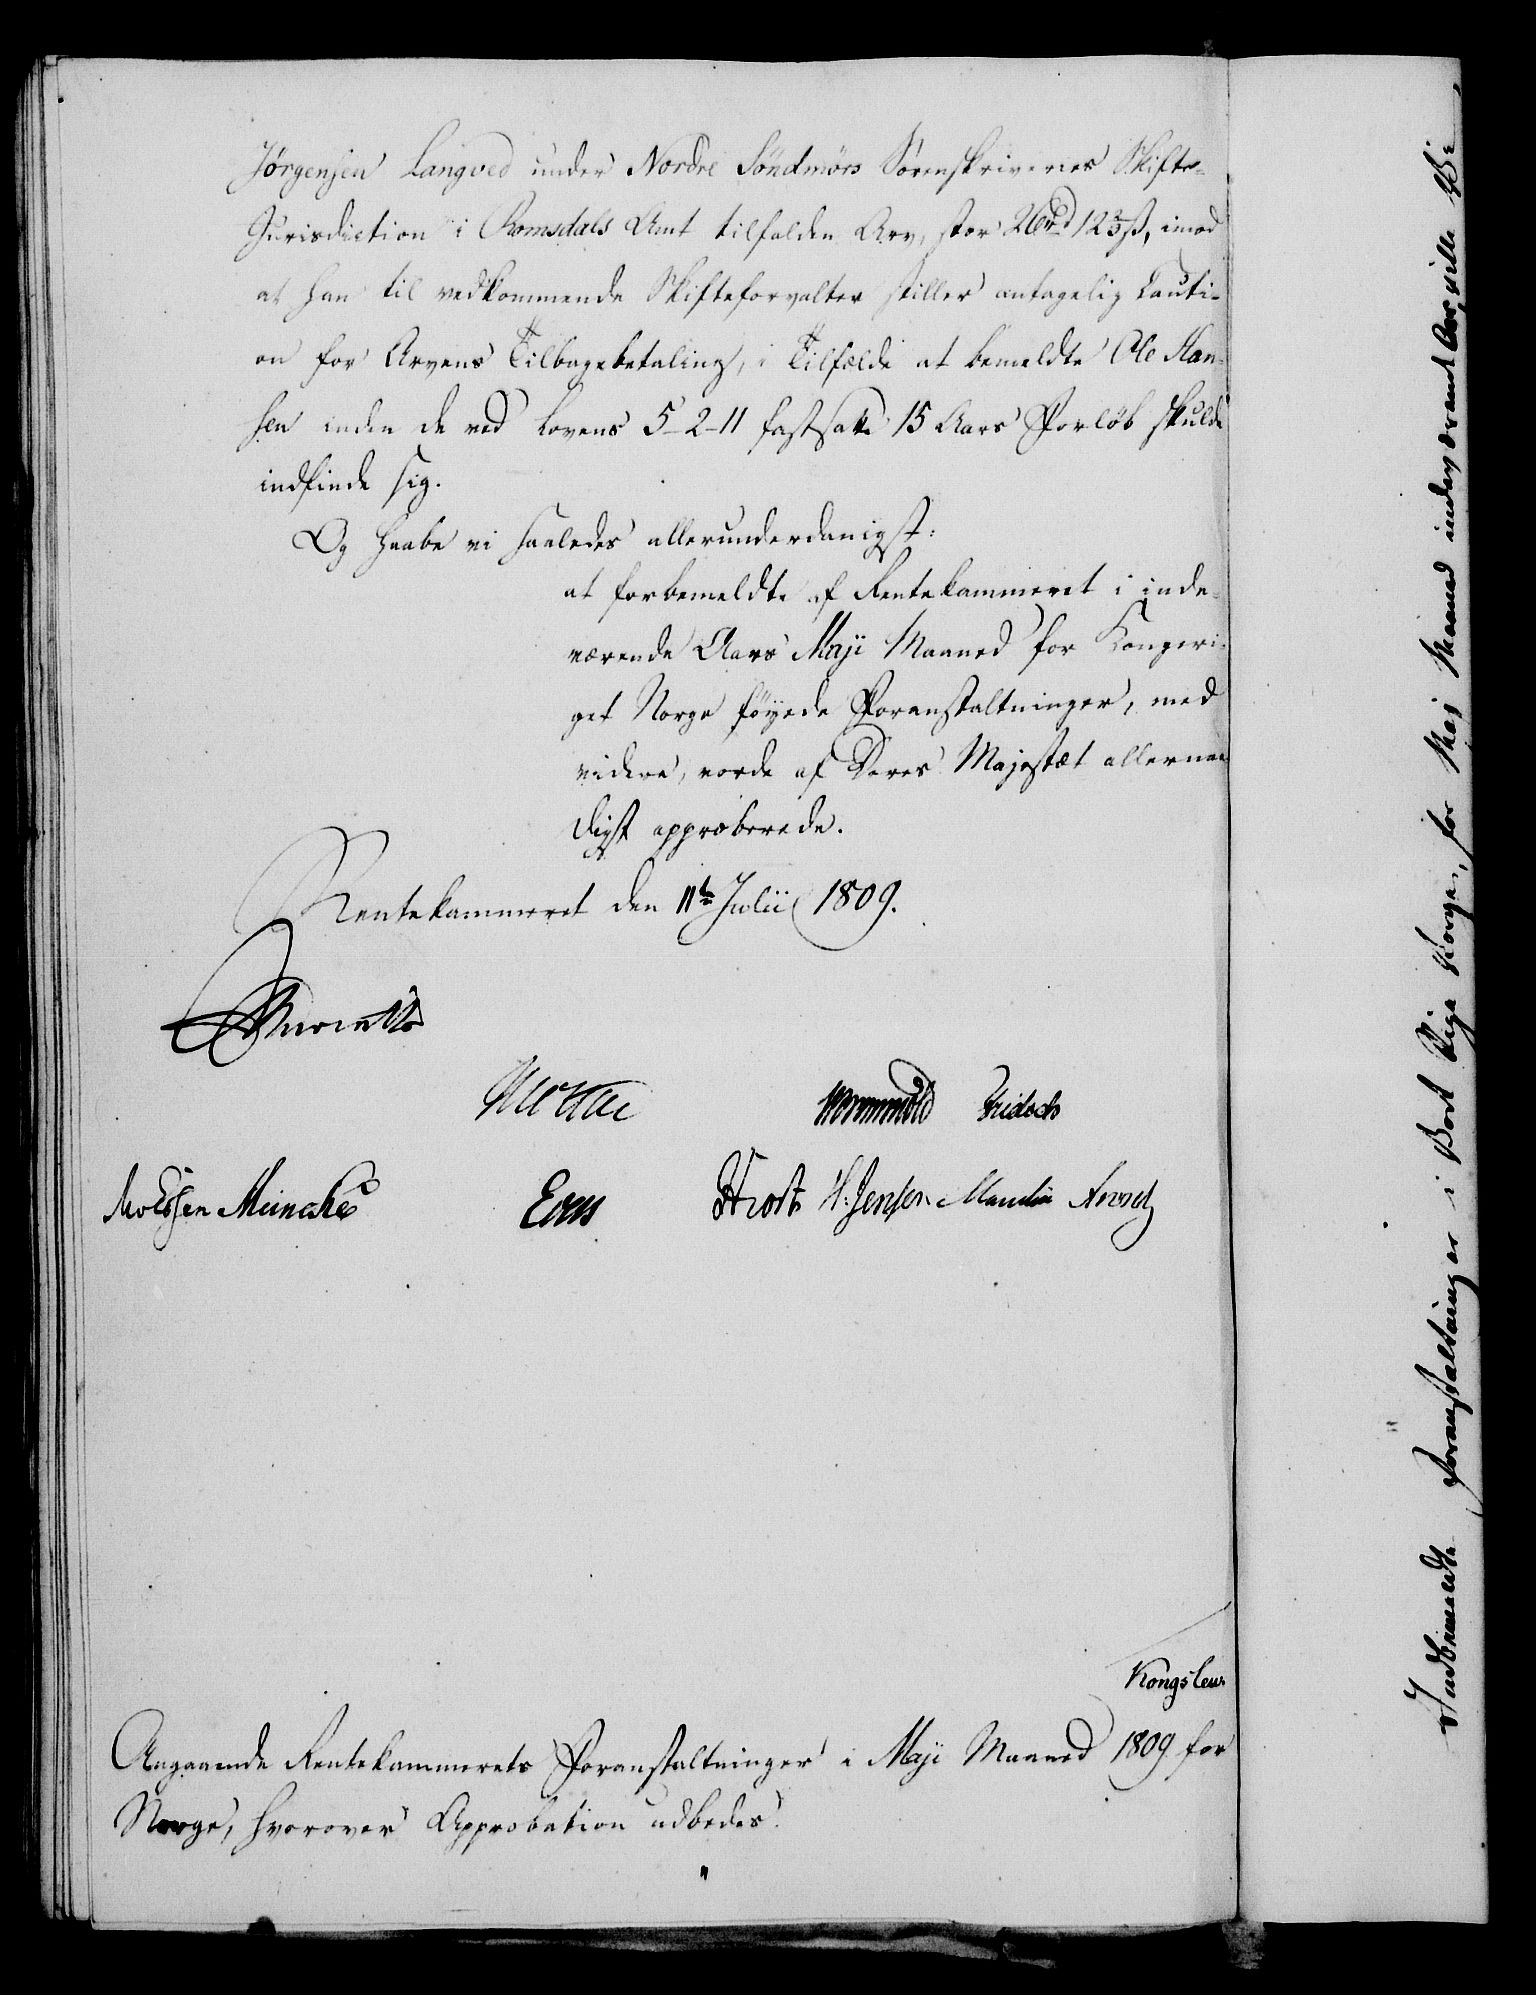 Jørgensen Langved under Nordre Söndmörs Sorenskriveries Skifte-
Jurisdiction i Romsdals Amt tilfalden Arv, stor 26rd 123ß, imod
at han til vedkommende Skifteforvalter stiller antagelig Cauti-
on for Arvens Tilbagebetaling, i Tilfælde at bemeldte Ole Han-
sen inden de ved Lovens 5-2-11 fastsatte 15 Aars Forløb skulde
indfinde sig.
Og haabe vi saaledes allerunderdanigst:
at forbemeldte af Rentekammeret i inde-
værende Aars Maji Maaned for Kongeri-
get Norge föyede Foranstaltninger, med
videre, vorde af Deres Majestæt allernaa
digst approberede.
Rentekammeret den 11te Julii 1809.
Wormskiold
Meinche
H. Jensen
Kongslew
Angaaende Rentekammerets Foranstaltninger i Maji Maaned 1809 for
Norge, hvorover Approbation udbedes.
Indbemeldte Foranstaltninger i Vort Rige Norge, for Maj Maaned indeværende Aar, ville Vi